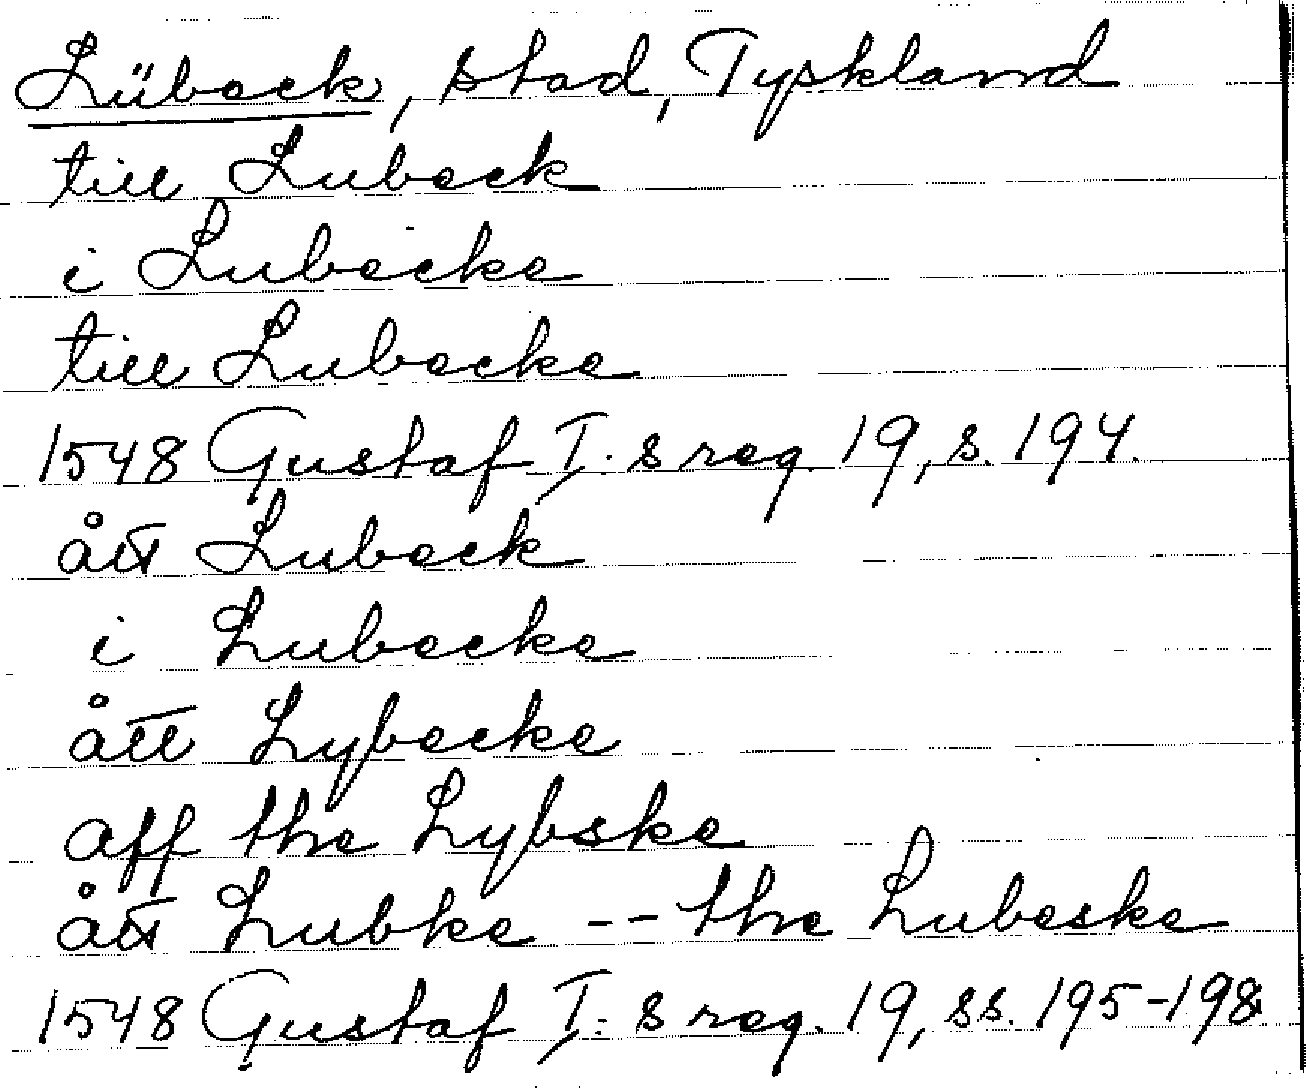 Lübeck, stad, Tyskland
till Lubeck
i Lubecke
till Lubecke
1548 Gustaf I:s reg. 19, s. 194.
ått Lubeck
i Lubecke
ått Lybecke
aff the Lybske
ått Lubke -- the Lubeske
1548 Gustaf I:s reg. 19, ss. 195-198